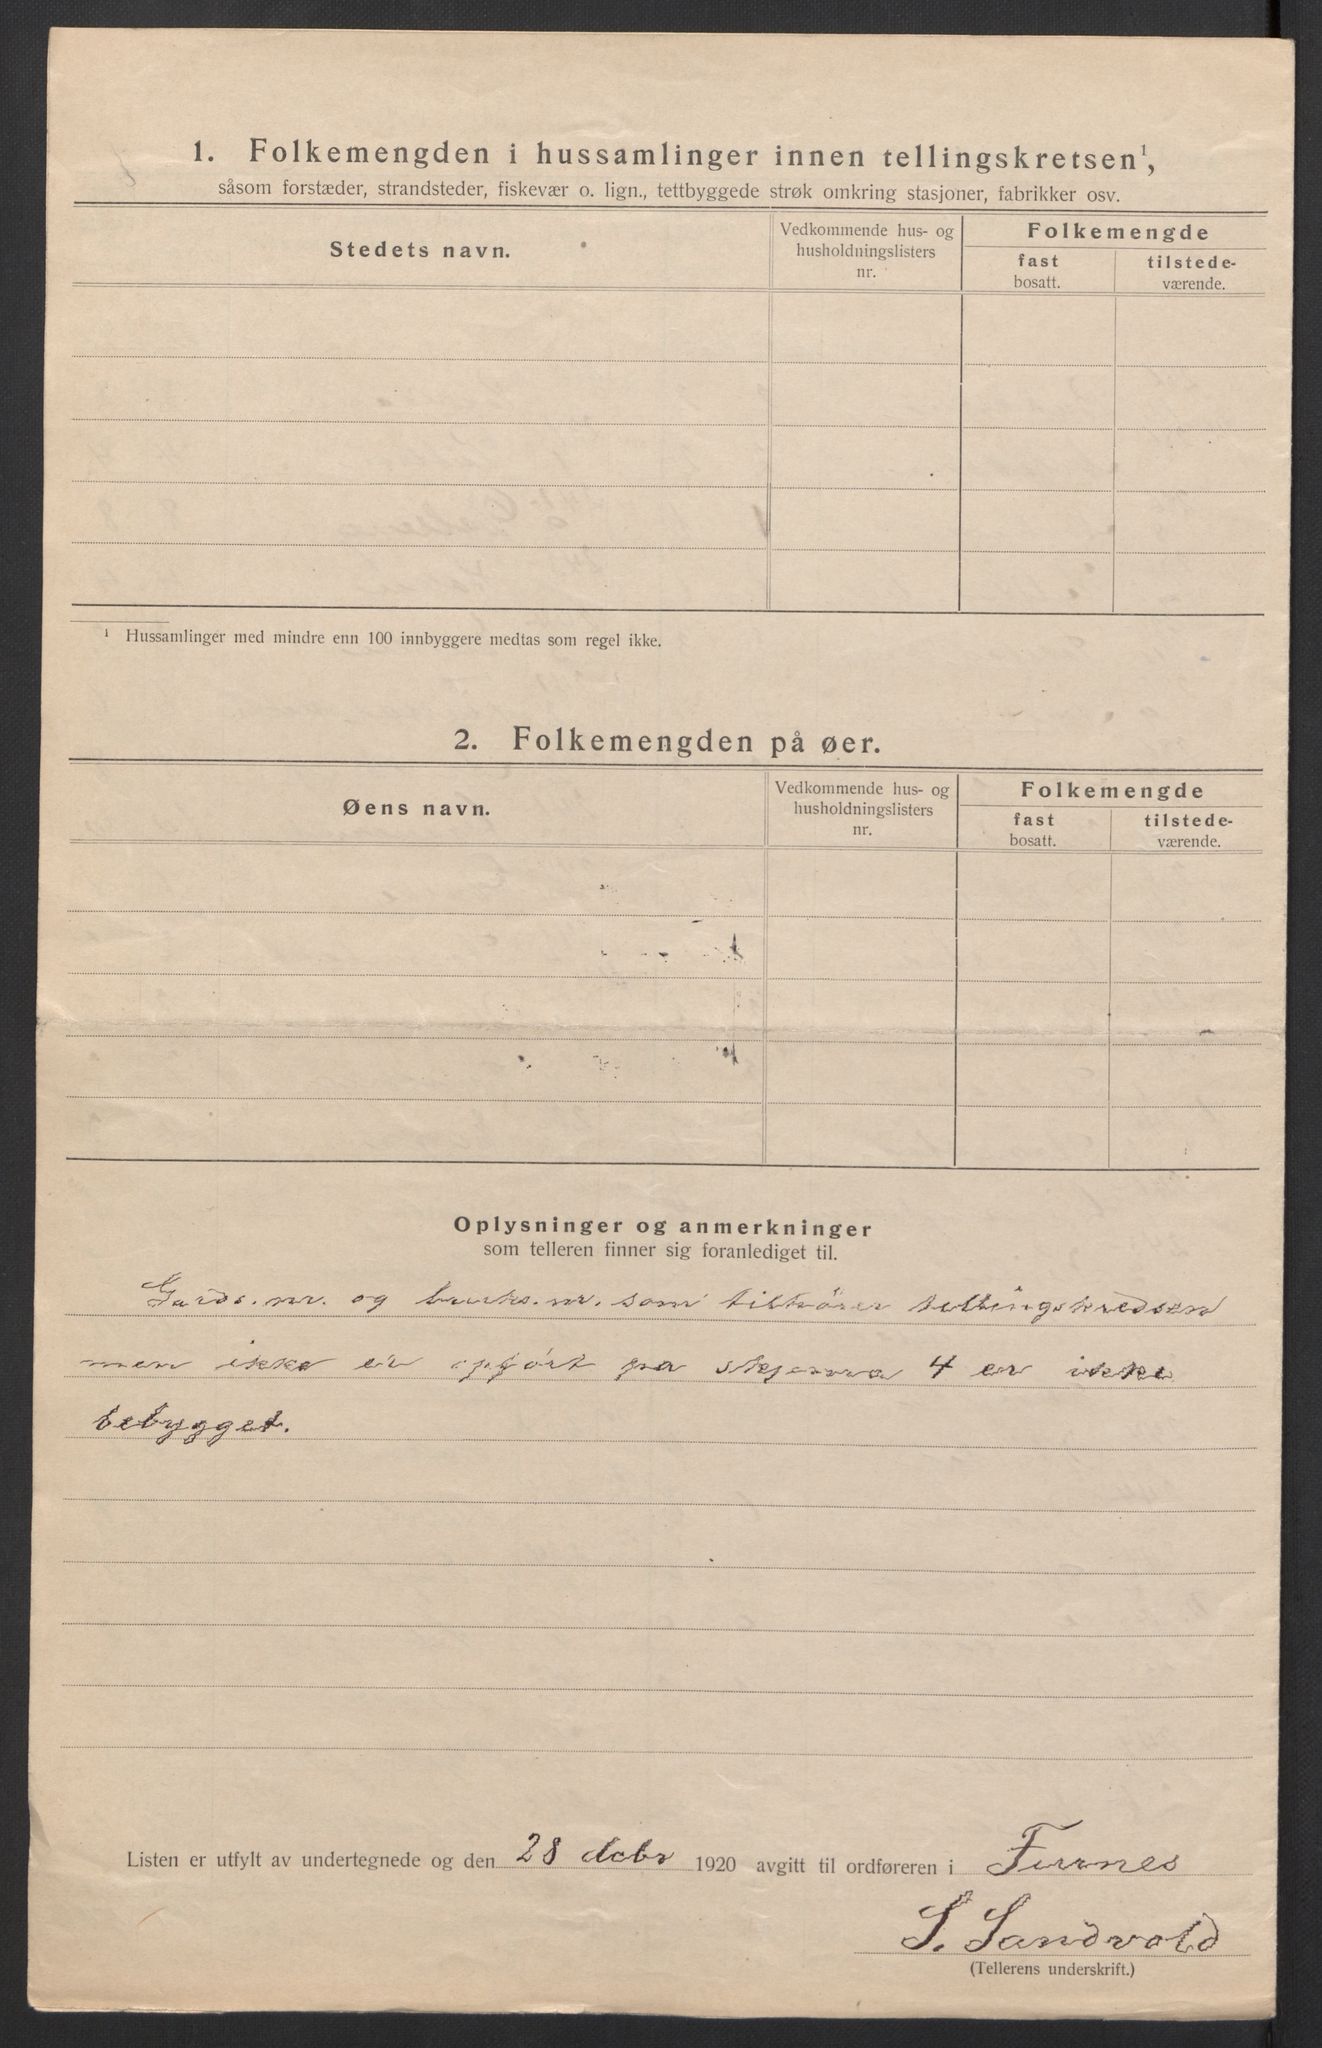 1. Folkemengden i hussamlinger innen tellingskretsen¹,
såsom forstæder, strandsteder, fiskevær o. lign., tettbyggede strøk omkring stasjoner, fabrikker osv.
Stedets navn.
Vedkommende hus- og
husholdningslisters
nr.
Folkemengde
fast
bosatt.
tilstede-
værende.
¹ Hussamlinger med mindre enn 100 innbyggere medtas som regel ikke.
2. Folkemengden på øer.
Øens navn.
Vedkommende hus- og
husholdningslisters
nr.
Folkemengde
fast
bosatt.
tilstede-
værende.
Oplysninger og anmerkninger
som telleren finner sig foranlediget til.
Gards.nr. og bruks.nr. som tilhörer tellingskredsen
men ikke er opfört pa skjema 4 er ikke
bebygget.
Listen er utfylt av undertegnede og den 28 debr 1920 avgitt til ordføreren i Furnes
S. Sandvold
(Tellerens underskrift.)